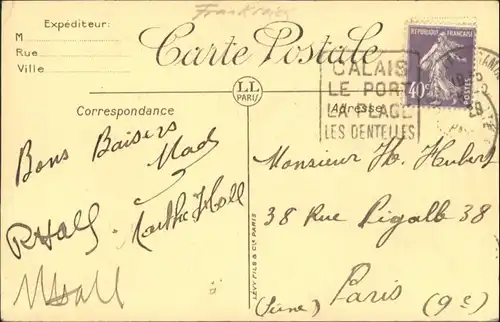 Frankreich
Expéditeur:
M
Rue
Ville
Carte Postale
LL
PARIS
RÉPUBLIQUE FRANÇAISE
40c
POSTES
CALAIS
LE PORT
LA PLAGE
LES DENTELLES
Correspondance
Adresse
Bons Baisers
Mad
RHall
Marthe Holl
MHall
LÉVY FILS & Cie PARIS
Monsieur Hubert
38 Rue Pigalle 38
Paris (9e)
(Seine)